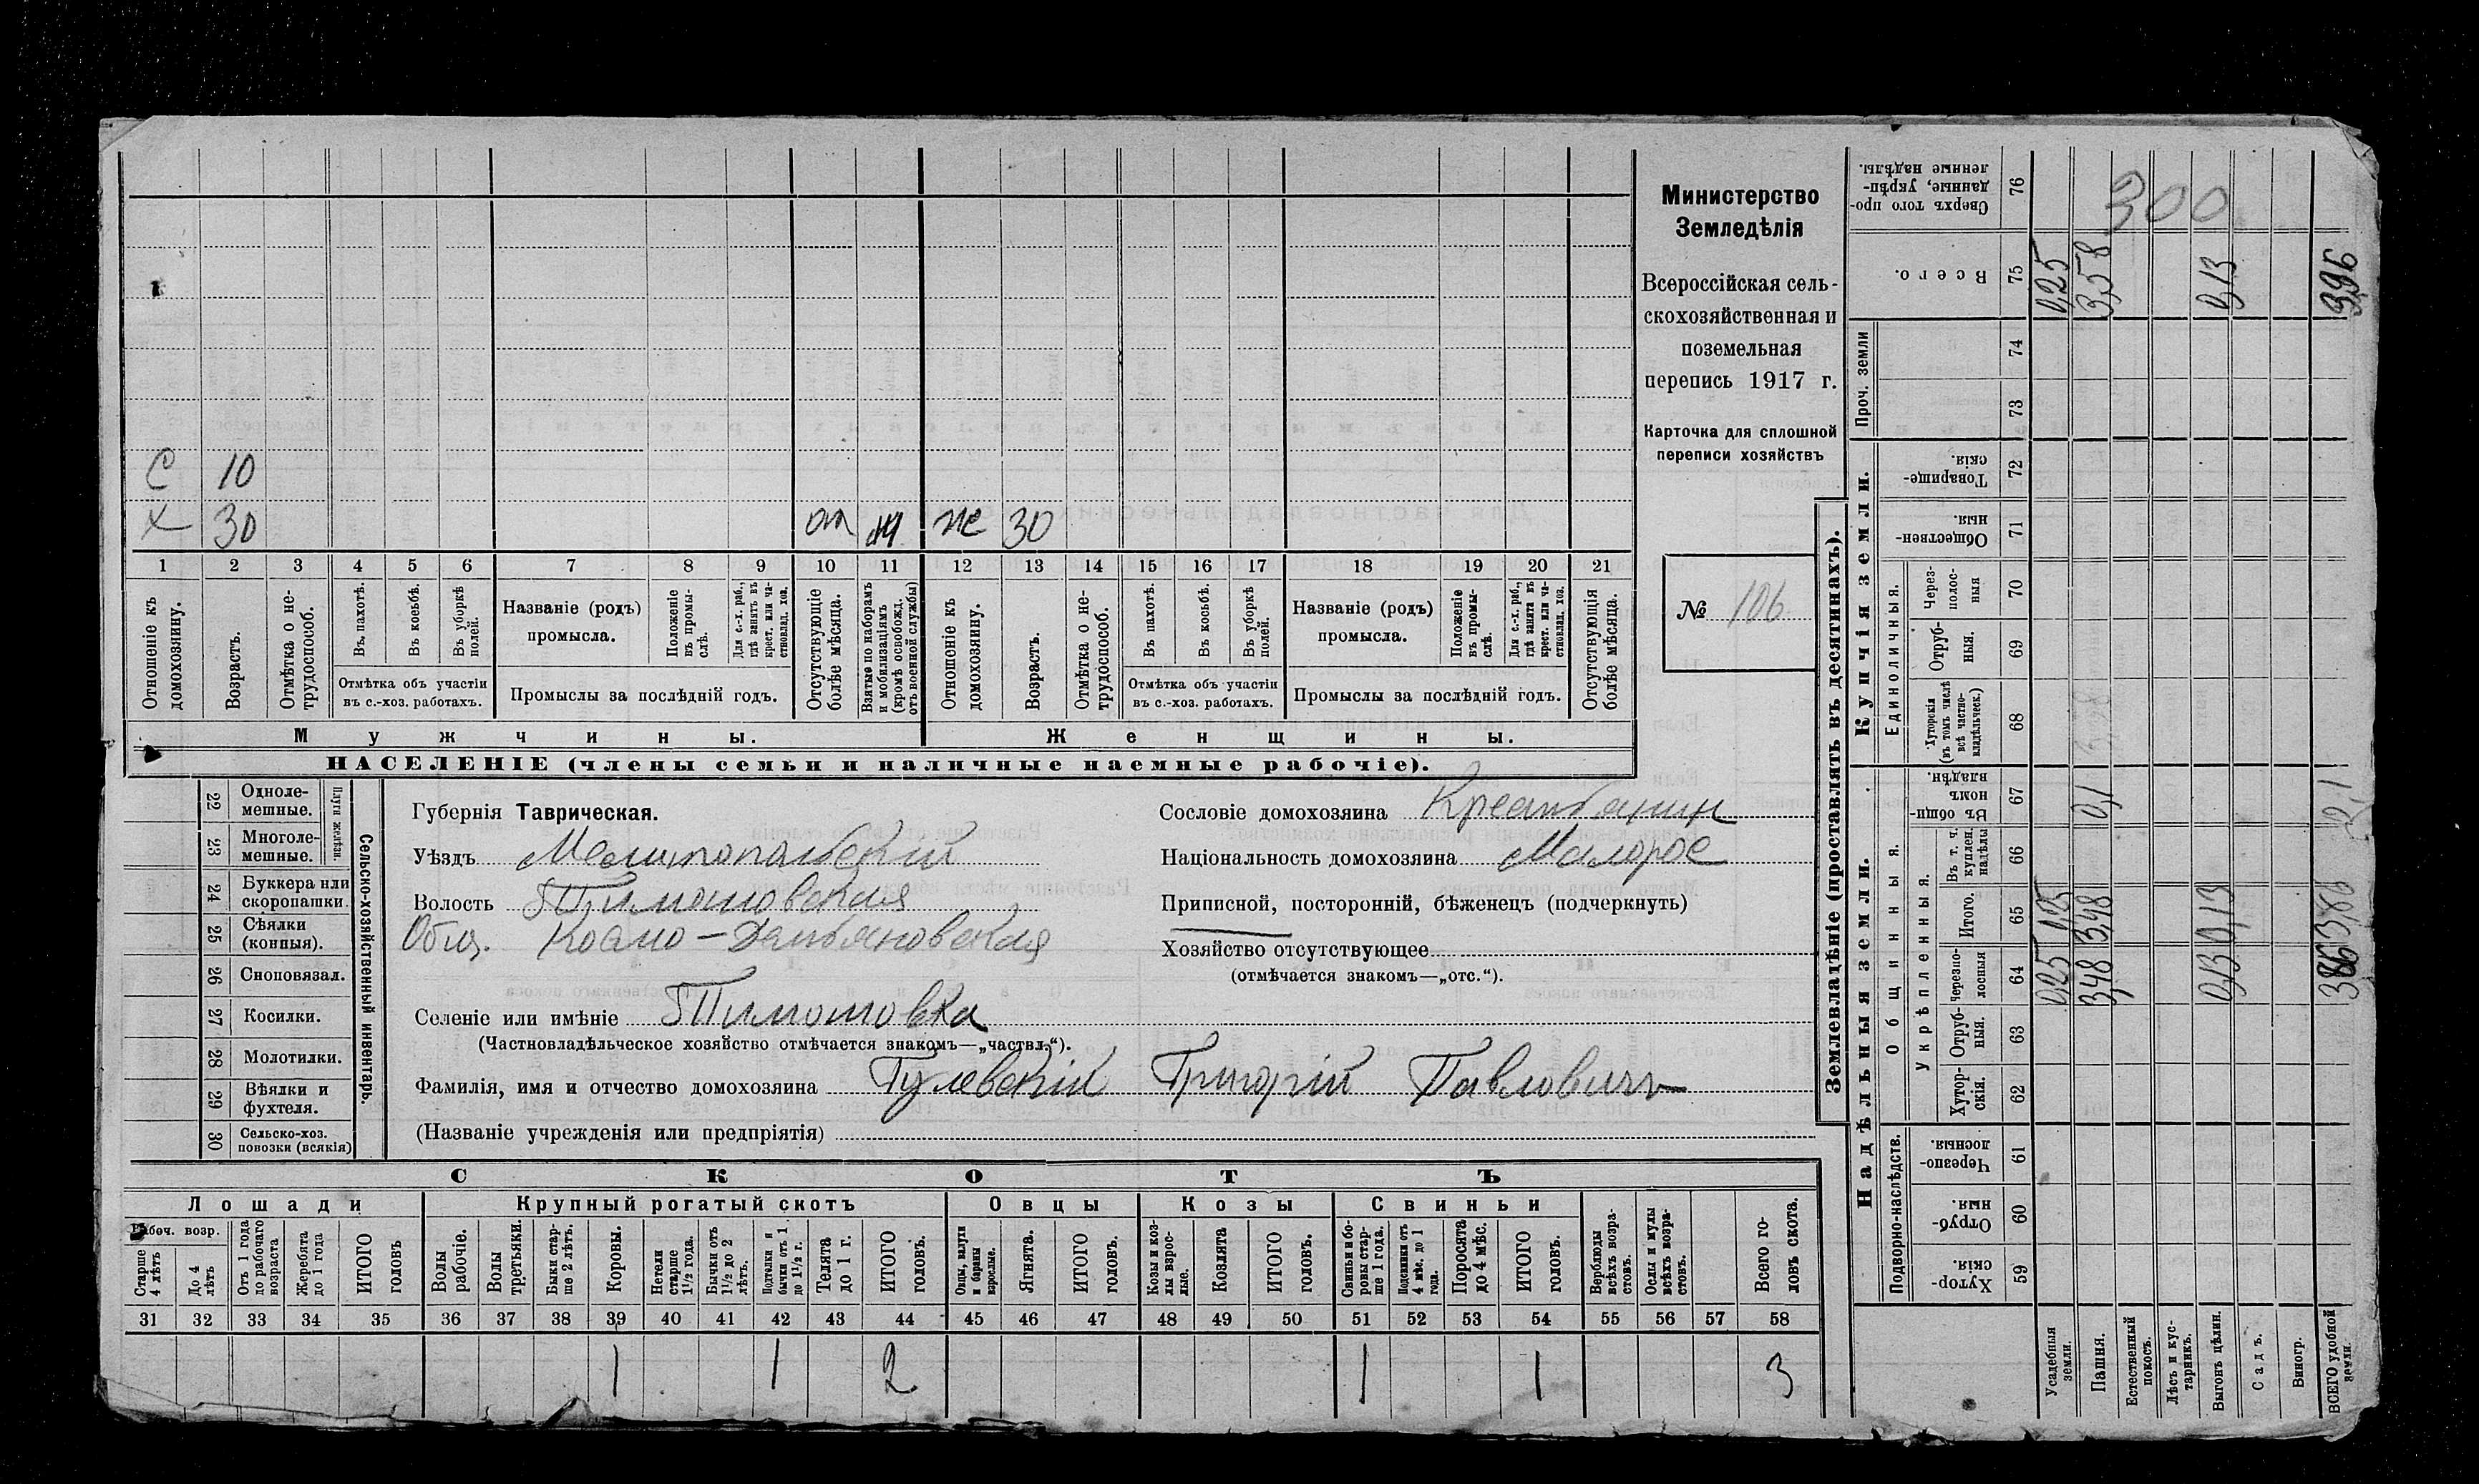 Министерство
Земледѣлія
Всероссійская сель-
скохозяйственная и
поземельная
перепись 1917 г.
Карточка для сплошной
переписи хозяйствъ
№ 106
С 10
Х 30 от м ж 30
1 2 3 4 5 6 7 8 9 10 11 12 13 14 15 16 17 18 19 20 21
Отношеніе къ домохозяину.
Возрастъ.
Отмѣтка о не-трудоспособ.
Въ пахотѣ.
Въ косьбѣ.
Въ уборкѣ полей.
Отмѣтка объ участіи
въ с.-хоз. работахъ.
Названіе (родъ)
промысла.
Положеніе въ промы-слѣ.
Для с.-х. раб., гдѣ занятъ въ крест. или ча-стновлад. хоз.
Промыслы за послѣдній годъ.
Отсутствующіе болѣе мѣсяца.
Взятые по наборамъ и мобилизаціямъ (кромѣ освобожд. отъ военной службы)
Отношеніе къ домохозяину.
Возрастъ.
Отмѣтка о не-трудоспособ.
Въ пахотѣ.
Въ косьбѣ.
Въ уборкѣ полей.
Отмѣтка объ участіи
въ с.-хоз. работахъ.
Названіе (родъ)
промысла.
Положеніе въ промы-слѣ.
Для с.-х. раб., гдѣ занята въ крест. или ча-стновлад. хоз.
Промыслы за послѣдній годъ.
Отсутствующія болѣе мѣсяца.
Мужчины. Женщины.
НАСЕЛЕНІЕ (члены семьи и наличные наемные рабочіе).
22 Однолемешные.
23 Многолемешные.
Плуги желѣзн.
24 Буккера или скоропашки.
25 Сѣялки (конныя).
26 Сноповязал.
27 Косилки.
28 Молотилки.
29 Вѣялки и фухтеля.
30 Сельско-хоз. повозки (всякія)
Сельско-хозяйственный инвентарь.
Губернія Таврическая.
Уѣздъ Мелитопольскій
Волость Тимошовская
Общ. Космо-Дамьяновская
Селеніе или имѣніе Тимошовка
(Частновладѣльческое хозяйство отмѣчается знакомъ—„частвл.“).
Фамилія, имя и отчество домохозяина Гулевскій Григорій Павловичъ
(Названіе учрежденія или предпріятія)
Сословіе домохозяина Крестьянин
Національность домохозяина Малорос
Приписной, посторонній, бѣженецъ (подчеркнуть)
Хозяйство отсутствующее
(отмѣчается знакомъ—„отс.“).
СКОТЪ
Лошади Крупный рогатый скотъ Овцы Козы Свиньи
Рабоч. возр.
Старше 4 лѣтъ
До 4 лѣтъ
Отъ 1 года до рабочаго возраста
Жеребята до 1 года
ИТОГО головъ
Волы рабочіе.
Волы третьяки.
Быки стар-ше 2 лѣтъ.
Коровы.
Нетели старше 1½ года.
Бычки отъ 1½ до 2 лѣтъ.
Подтелки и бычки отъ 1 до 1½ г.
Телята до 1 г.
ИТОГО головъ.
Овцы, валухи и бараны взрослые.
Ягнята.
ИТОГО головъ.
Козы и коз-лы взрос-лые.
Козлята
ИТОГО головъ.
Свиньи и бо-ровы стар-ше 1 года.
Подсвинки отъ 4 мѣс. до 1 года.
Поросята до 4 мѣс.
ИТОГО головъ.
Верблюды всѣхъ возра-стовъ.
Ослы и мулы всѣхъ возра-стовъ.
Всего го-ловъ скота.
31 32 33 34 35 36 37 38 39 40 41 42 43 44 45 46 47 48 49 50 51 52 53 54 55 56 57 58
1 1 2 1 1 3
Землевладѣніе (проставлять въ десятинахъ).
Купчія земли.
Надѣльныя земли.
Сверхъ того про-данные, укрѣп-ленные надѣлы. 76 300
Всего. 75 0,25 3,58 0,13 3,96
Проч. земли 74
73
Товарище-скія. 72
Обществен-ныя. 71
Единоличныя.
Через-полос-ныя 70
Отруб-ныя. 69
Хуторскія (въ томъ числѣ всѣ частно-владѣльческ.) 68
Общинныя.
Въ общи-номъ владѣн. 67 0,1 0,1
Укрѣпленныя.
Въ т. ч. куплен. надѣлы 66
Итого. 65 0,25 3,48 0,13 3,86
Черезпо-лосныя 64 0,25 3,48 0,13 3,86
Отруб-ныя. 63
Хутор-скія. 62
Подворно-наслѣдств.
Черезпо-лосныя. 61
Отруб-ныя. 60
Хутор-скія. 59
Усадебныя земли.
Пашня.
Естественный покосъ.
Лѣсъ и кус-тарникъ.
Выгонъ цѣлин.
Садъ.
Виногр.
ВСЕГО удобной земли.